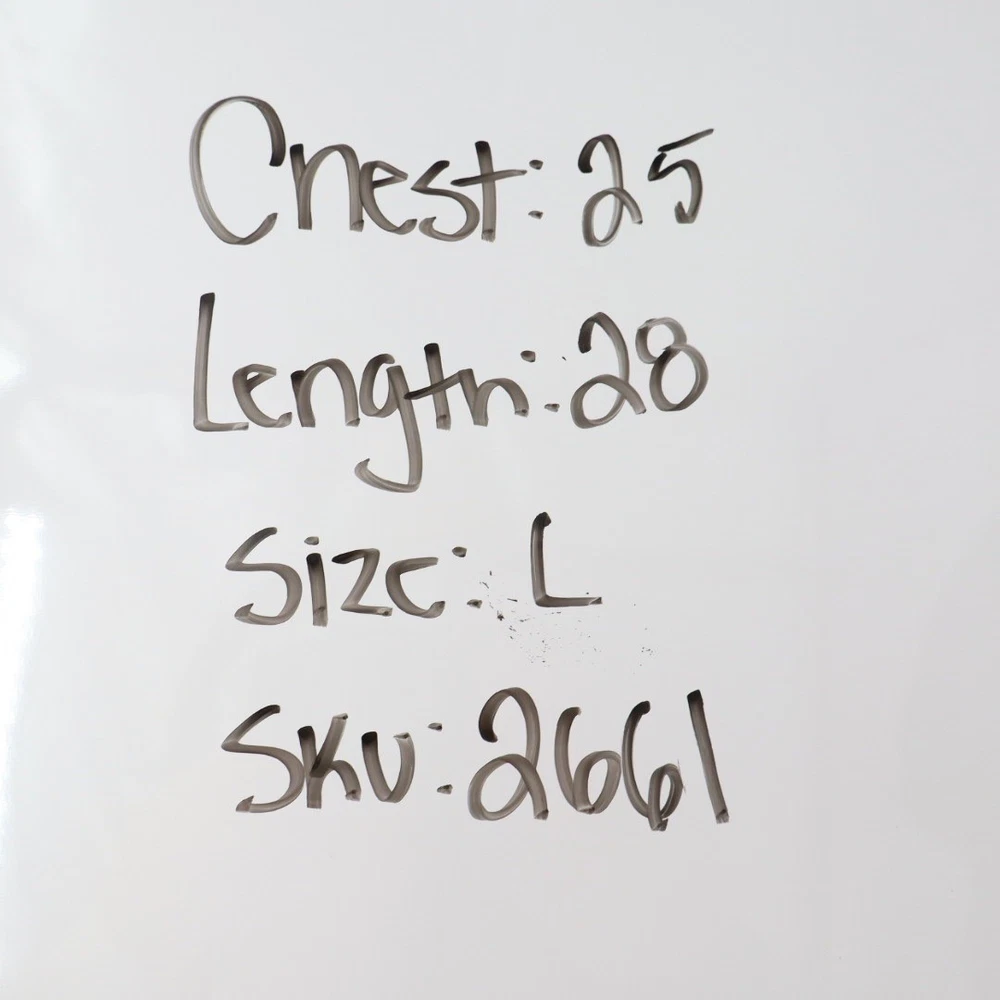 Chest: 25
Length: 28
Size: L
SKU: 2661